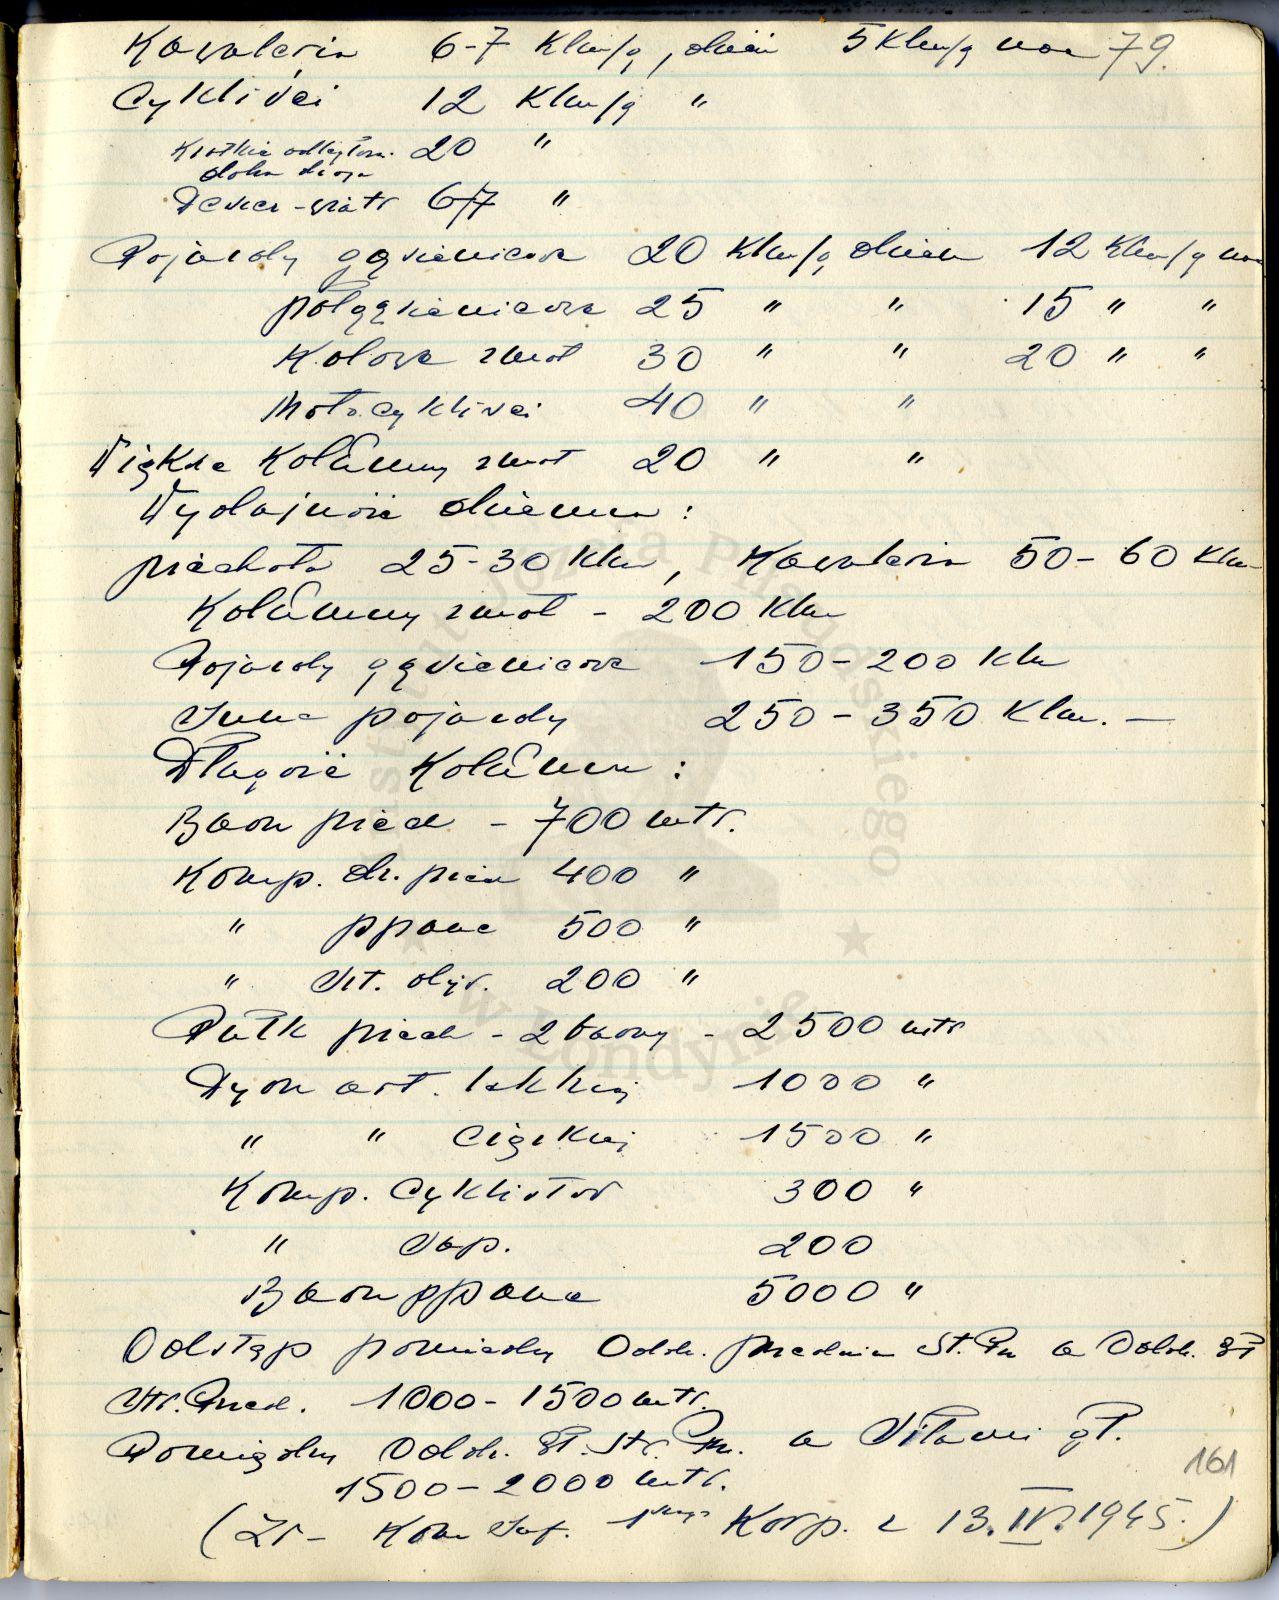 Kawaleria 6-7 Klm/g, dzień 5 Klm/g noc 79.
Cykliści 12 Klm/g "
Krótkie odległości. 20 "
dobra droga
Deszcz-wiatr 6/7 "
Pojazdy gąsienicowe 20 Klm/g dzień 12 Klm/g noc
półgąsienicowe 25 " " 15 " "
Kołowe zmot 30 " " 20 " "
Motocykliści 40 " "
Większe Kolumny zmot 20 " "
Wydajność dzienna :
piechota 25-30 Klm, Kawaleria 50-60 Klm
Kolumny zmot - 200 Klm
Pojazdy gąsienicowe 150-200 Klm
Inne pojazdy 250-350 Klm. —
Długość Kolumn :
Baon piech - 700 mtr.
Komp. dz. piech 400 "
" ppanc 500 "
" 200 "
Pułk piech - 2 baony - 2500 mtr
Dyon art. lekkiej 1000 "
" " ciężkiej 1500 "
Komp. Cyklistów 300 "
" Sap. 200
Baon ppanc 5000 "
Odstęp pomiędzy Oddz. przednim St. Prz a Oddz. gł
Str. Przed. 1000-1500 mtr.
Pomiędzy Oddz. gł. Str. Prz. a Siłami gł.
1500-2000 mtr.
161
( Kom Inf. 1 Korp. z 13.IV.1945.)
Instytut Józefa Piłsudskiego
w Londynie